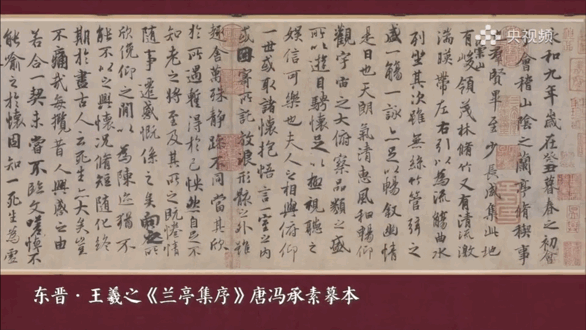 央视频
永和九年歲在癸丑暮春之初會
于會稽山陰之蘭亭脩稧事
也羣賢畢至少長咸集此地
有崇山峻領茂林脩竹又有清流激
湍暎帶左右引以為流觴曲水
列坐其次雖無絲竹管弦之
盛一觴一詠亦足以暢敘幽情
是日也天朗氣清惠風和暢仰
觀宇宙之大俯察品類之盛
所以遊目騁懷足以極視聽之
娛信可樂也夫人之相與俯仰
一世或取諸懷抱悟言一室之內
或因寄所託放浪形骸之外雖
趣舍萬殊靜躁不同當其欣
於所遇暫得於己怏然自足不
知老之將至及其所之既惓情
隨事遷感慨係之矣向之所
欣俛仰之閒以為陳迹猶不
能不以之興懷況脩短隨化終
期於盡古人云死生亦大矣豈
不痛哉每攬昔人興感之由
若合一契未嘗不臨文嗟悼不
能喻之於懷固知一死生為虛
东晋·王羲之《兰亭集序》唐冯承素摹本